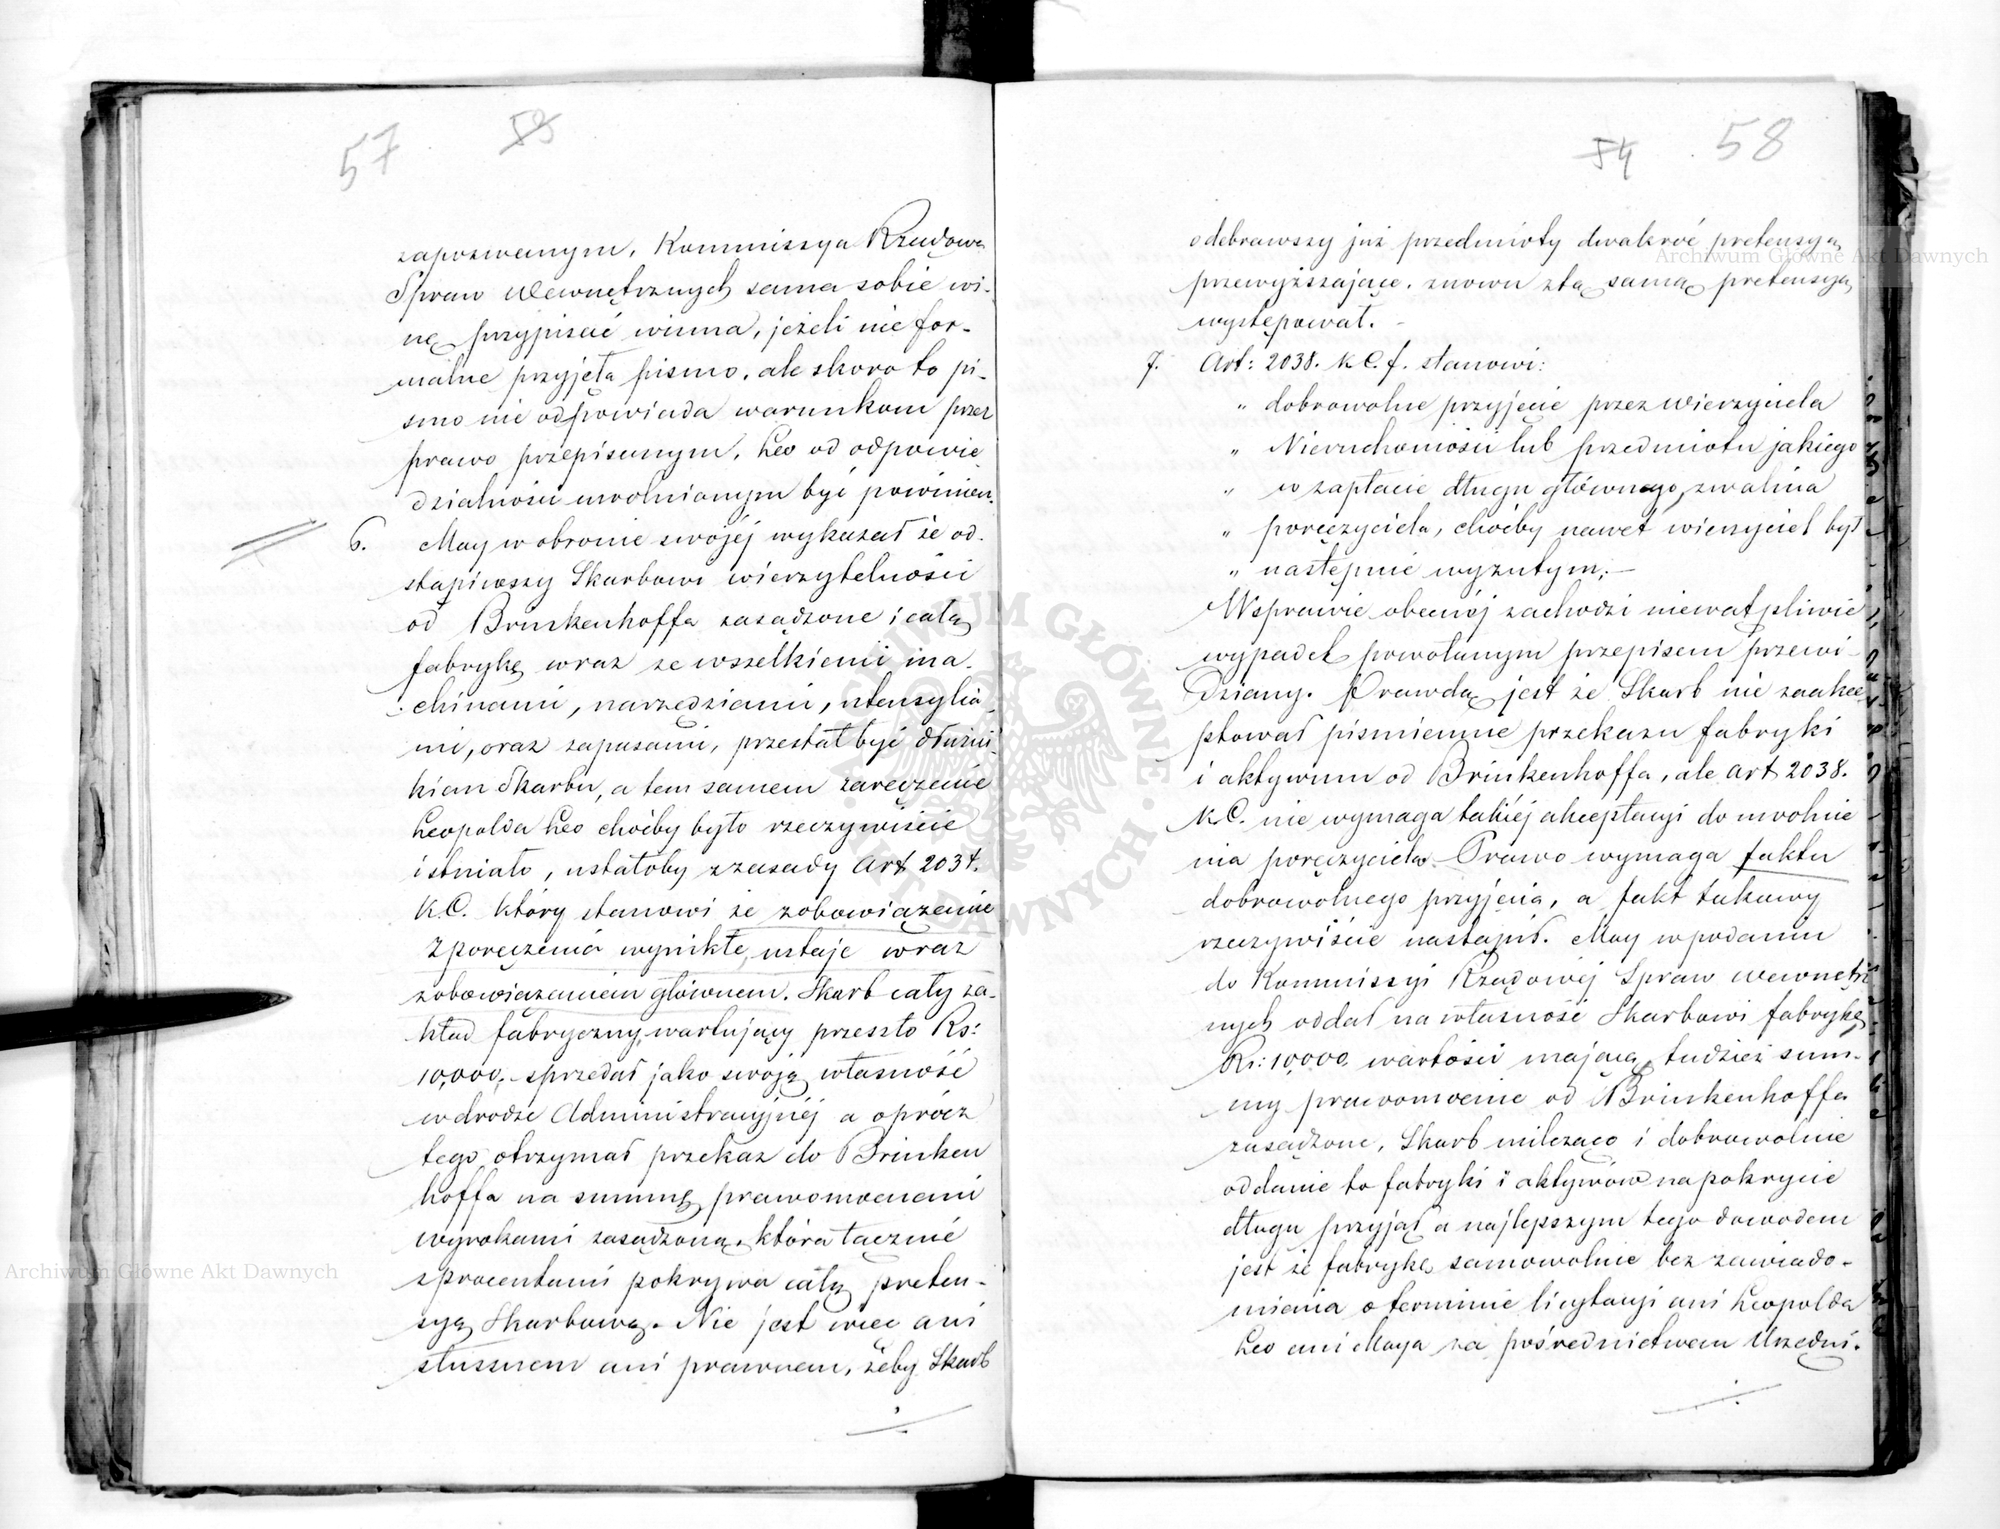 57 53
zapozwanym. Kommissya Rządowa
Spraw Wewnętrznych sama sobie wi-
nę przypisać winna, jeżeli nie for-
malne przyjęła pismo. ale skoro to pi-
smo nie odpowiada warunkom przez
prawo przepisanym, Leo od odpowie-
dzialności uwolnianym być powinien.
6. May w obronie swojéj wykazał że od-
stąpiwszy Skarbowi wierzytelności
od Brinkenhoffa zasądzone i całą
fabrykę wraz ze wszelkiemi ma-
chinami, narzędziami, utensylia-
mi, oraz zapasami, przestał być dłużni-
kiem Skarbu, a tem samem zaręczenie
Leopolda Leo choćby było rzeczywiście
istniało, ustałoby z zasady Art 2034.
K.C. który stanowi że zobowiązanie
z poręczenia wynikłe, ustaje wraz
zobowiązaniem głównem. Skarb cały za-
kład fabryczny, wartujący przeszło Rs:
10,000, sprzedał jako swoją własność
w drodze Administracyjnéj a oprócz
tego otrzymał przekaz do Brinken
hoffa na summę prawomocnemi
wyrokami zasądzoną, która łącznie
z procentami pokrywa całą preten-
syą Skarbową. Nie jest więc ani
słusznem ani prawnem, żeby Skarb
54 58
odebrawszy już przedmioty dwakroć pretensyą
przewyższające. znowu z tą samą pretensyą
występował. -
7. Art: 2038. K.C.f. stanowi:
„ dobrowolne przyjęcie przez Wierzyciela
„ Nieruchomości lub przedmiotu jakiego
„ w zapłacie długu głównego, zwalnia
„ poręczyciela, choćby nawet wierzyciel był
„ następnie wyzutym; —
W sprawie obecnéj zachodzi niewątpliwie
wypadek powołanym przepisem przewi-
dziany. Prawdą jest że Skarb nie zaakce
ptował piśmiennie przekazu fabryki
i aktywum od Brinkenhoffa, ale Art 2038.
K.C. nie wymaga takiéj akceptacyi do uwolnie
nia poręczyciela. Prawo wymaga faktu
dobrowolnego przyjęcia, a fakt takowy
rzeczywiście nastąpił. May w podaniu
do Kommissyi Rządowéj Spraw Wewnętrz
nych oddał na własność Skarbowi fabrykę
Rs: 10,000 wartości mającą, tudzież sum-
my prawomocnie od Brinkenhoffa
zasądzone, Skarb milcząco i dobrowolnie
oddanie to fabryki i aktywów na pokrycie
długu przyjął a najlepszym tego dowodem
jest że fabrykę samowolnie bez zawiado-
mienia o terminie licytacyi ani Leopolda
Leo ani Maya za pośrednictwem Urzędni-
Archiwum Główne Akt Dawnych
Archiwum Główne Akt Dawnych
ARCHIWUM GŁÓWNE AKT DAWNYCH